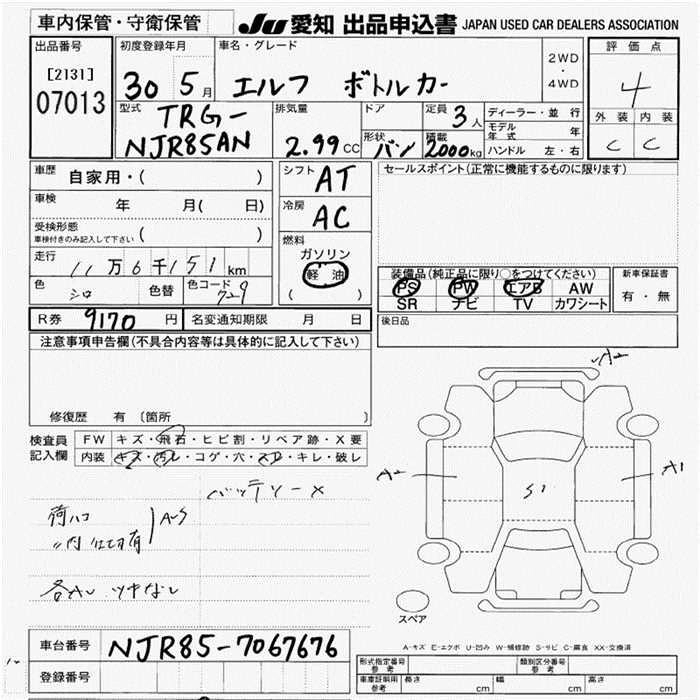 車内保管・守衛保管
JU 愛知 出品申込書 JAPAN USED CAR DEALERS ASSOCIATION
出品番号
[2131]
07013
初度登録年月
30 5月
車名・グレード
エルフ ボトルカー
2WD
・
4WD
評価点
4
外装 内装
C C
型式
TRG-
NJR85AN
排気量
2.99 CC
ドア
形状
バン
定員 3人
積載
2000kg
ディーラー・並行
モデル年式 年
ハンドル 左・右
車歴 自家用・( )
車検 年 月( 日)
受検形態
車検付きのみ記入して下さい ( )
走行
11万6千151km
色 シロ 色替 色コード 729
シフト AT
冷房 AC
燃料
ガソリン
軽油
( )
セールスポイント(正常に機能するものに限ります)
装備品(純正品に限り○をつけてください)
PS PW エアB AW
SR ナビ TV カワシート
新車保証書
有・無
R券 9170 円 名変通知期限 月 日
後日品
注意事項申告欄(不具合内容等は具体的に記入して下さい)
修復歴 有 〔箇所
検査員
記入欄
FW キズ・飛石・ヒビ割・リペア跡・X要
内装 キズ・汚レ・コゲ・穴・スレ・キレ・破レ
バッテリーX
荷ハコ
〃内 仕切有
A-S
A2
A2
S1
A1
スペア
A-キズ E-エクボ U-凹み W-補修跡 S-サビ C-腐食 XX-交換済
車台番号 NJR85-7067676
登録番号
形式指定番号
参考
類別区分番号
参考
車庫証明用
参考
長さ cm 幅 cm 高さ cm